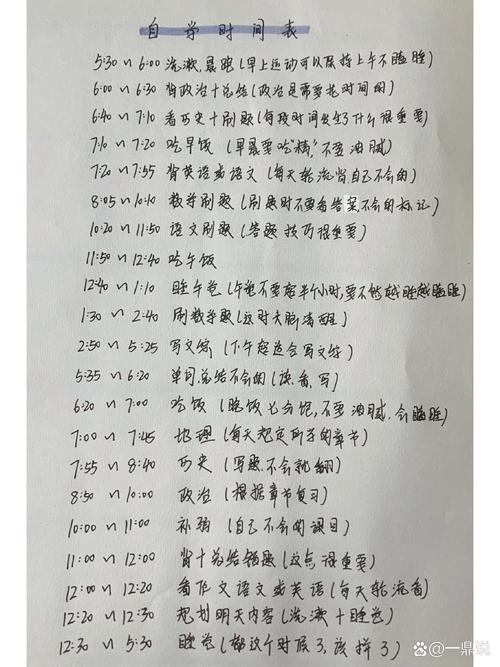 自学时间表
5:30 ~ 6:00 洗漱,晨跑(早上运动可以保持上午不瞌睡)
6:00 ~ 6:30 背政治+总结(政治是需要花时间的)
6:40 ~ 7:10 看历史+刷题(每段时间发生了什么很重要)
7:10 ~ 7:20 吃早饭(早晨要吃"精",不要油腻)
7:20 ~ 7:55 背英语或语文(每天轮流背自己不会的)
8:05 ~ 10:10 数学刷题(刷题时不要看答案,不会的标记)
10:20 ~ 11:50 语文刷题(答题技巧很重要)
11:50 ~ 12:40 吃午饭
12:40 ~ 1:10 睡午觉(午觉不要超半个小时,要不然越睡越瞌睡)
1:30 ~ 2:40 刷数学题(这时大脑清醒)
2:50 ~ 5:25 写文综(下午超适合写文综)
5:35 ~ 6:20 单词,总结不会的(读,看,写)
6:20 ~ 7:00 吃饭(晚饭七分饱,不要油腻,会瞌睡)
7:00 ~ 7:45 地理(每天规定所学的章节)
7:55 ~ 8:40 历史(写题,不会就翻)
8:50 ~ 10:00 政治(根据章节复习)
10:00 ~ 11:00 补弱(自己不会的课目)
11:00 ~ 12:00 背+总结错题(这点很重要)
12:00 ~ 12:20 看作文语文或英语(每天轮流看)
12:20 ~ 12:30 规划明天内容(洗漱+睡觉)
12:30 ~ 5:30 睡觉(都这个时候了,该拼了)
百家号@一鼎说